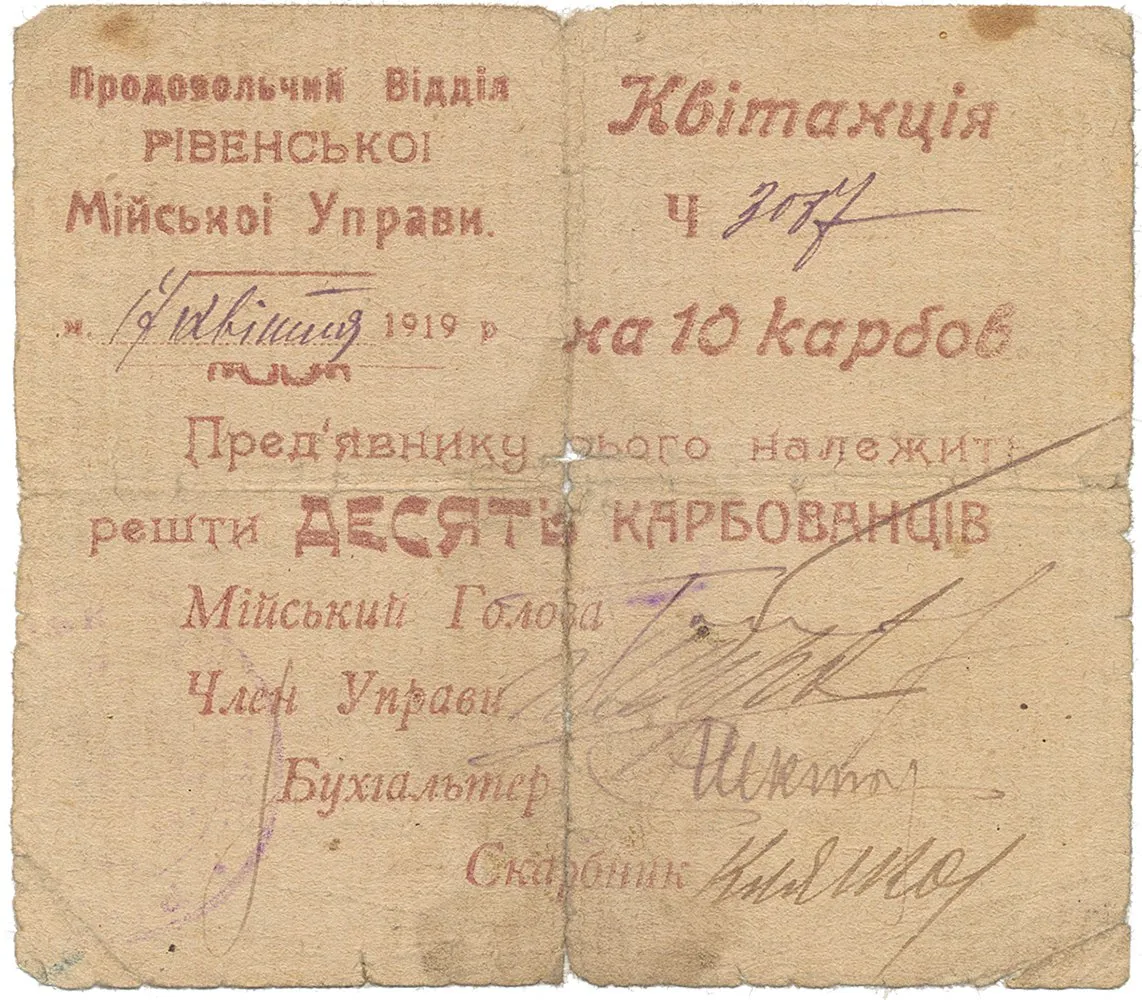 Продовольчий Відділ
РІВЕНСЬКОІ
Мійськоі Управи.
м. 17 квітня 1919 р
Квітанція
Ч 3087
на 10 карбов
Пред'явнику сього належить
решти ДЕСЯТЬ КАРБОВАНЦІВ
Мійський Голова
Член Управи
Бухгальтер
Скарбник